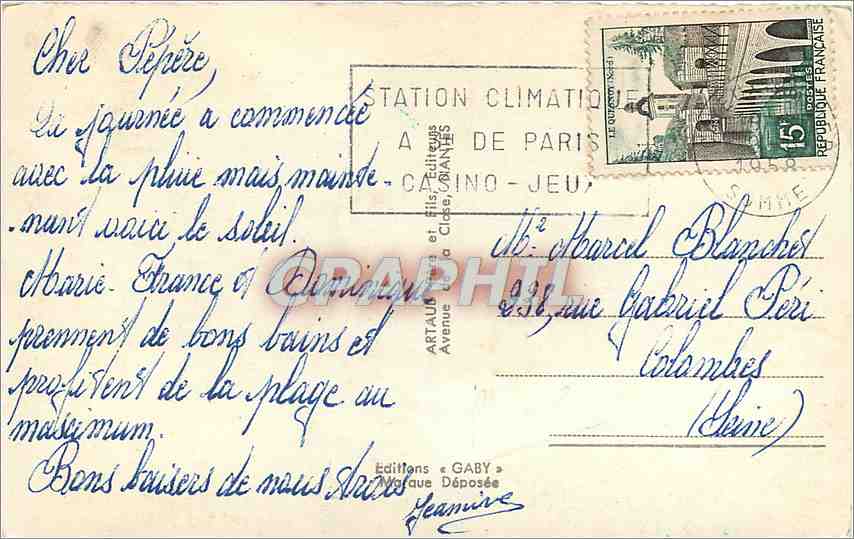 Cher Pépère,
La journée a commencée
avec la pluie mais mainte-
nant voici le soleil.
Marie-France et Dominique
prennent de bons bains et
profitent de la plage au
maximum.
Bons baisers de nous trois
Jeanine
STATION CLIMATIQUE
A DE PARIS
CASINO - JEUX
LE QUESNOY (Nord)
15F
POSTES
REPUBLIQUE FRANÇAISE
1958
SOMME
ARTAUD Père et Fils, Editeurs
Avenue de la Close, NANTES
CPAPHIL
Mr Marcel Blanchet
338, rue Gabriel Péri
Colombes
(Seine)
Editions « GABY »
Marque Déposée